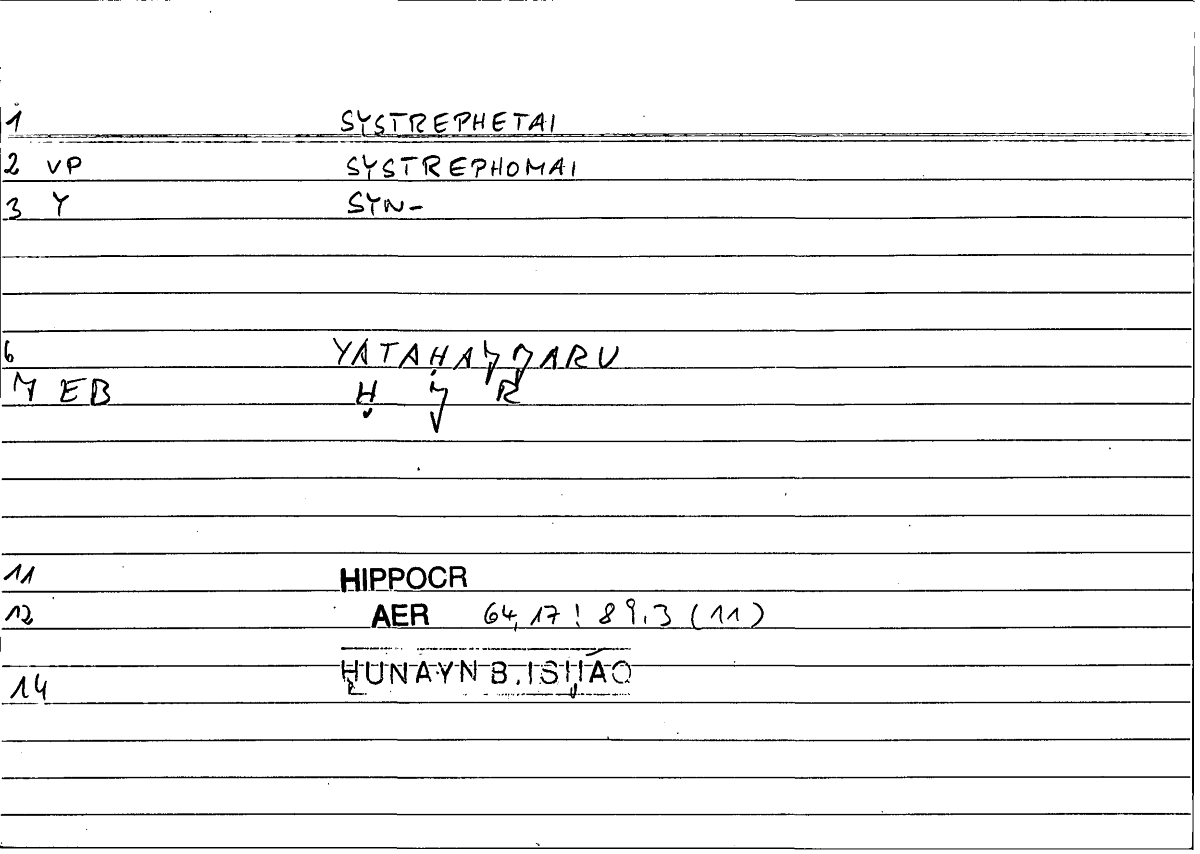 1 SYSTREPHETAI
2 VP SYSTREPHOMAI
3 Y SYN-
6 YATAḤAJJARU
7 EB Ḥ J̬ R
11 HIPPOCR
12 AER 64,17! 89.3 (11)
14 ḤUNAYN B. ISḤĀQ